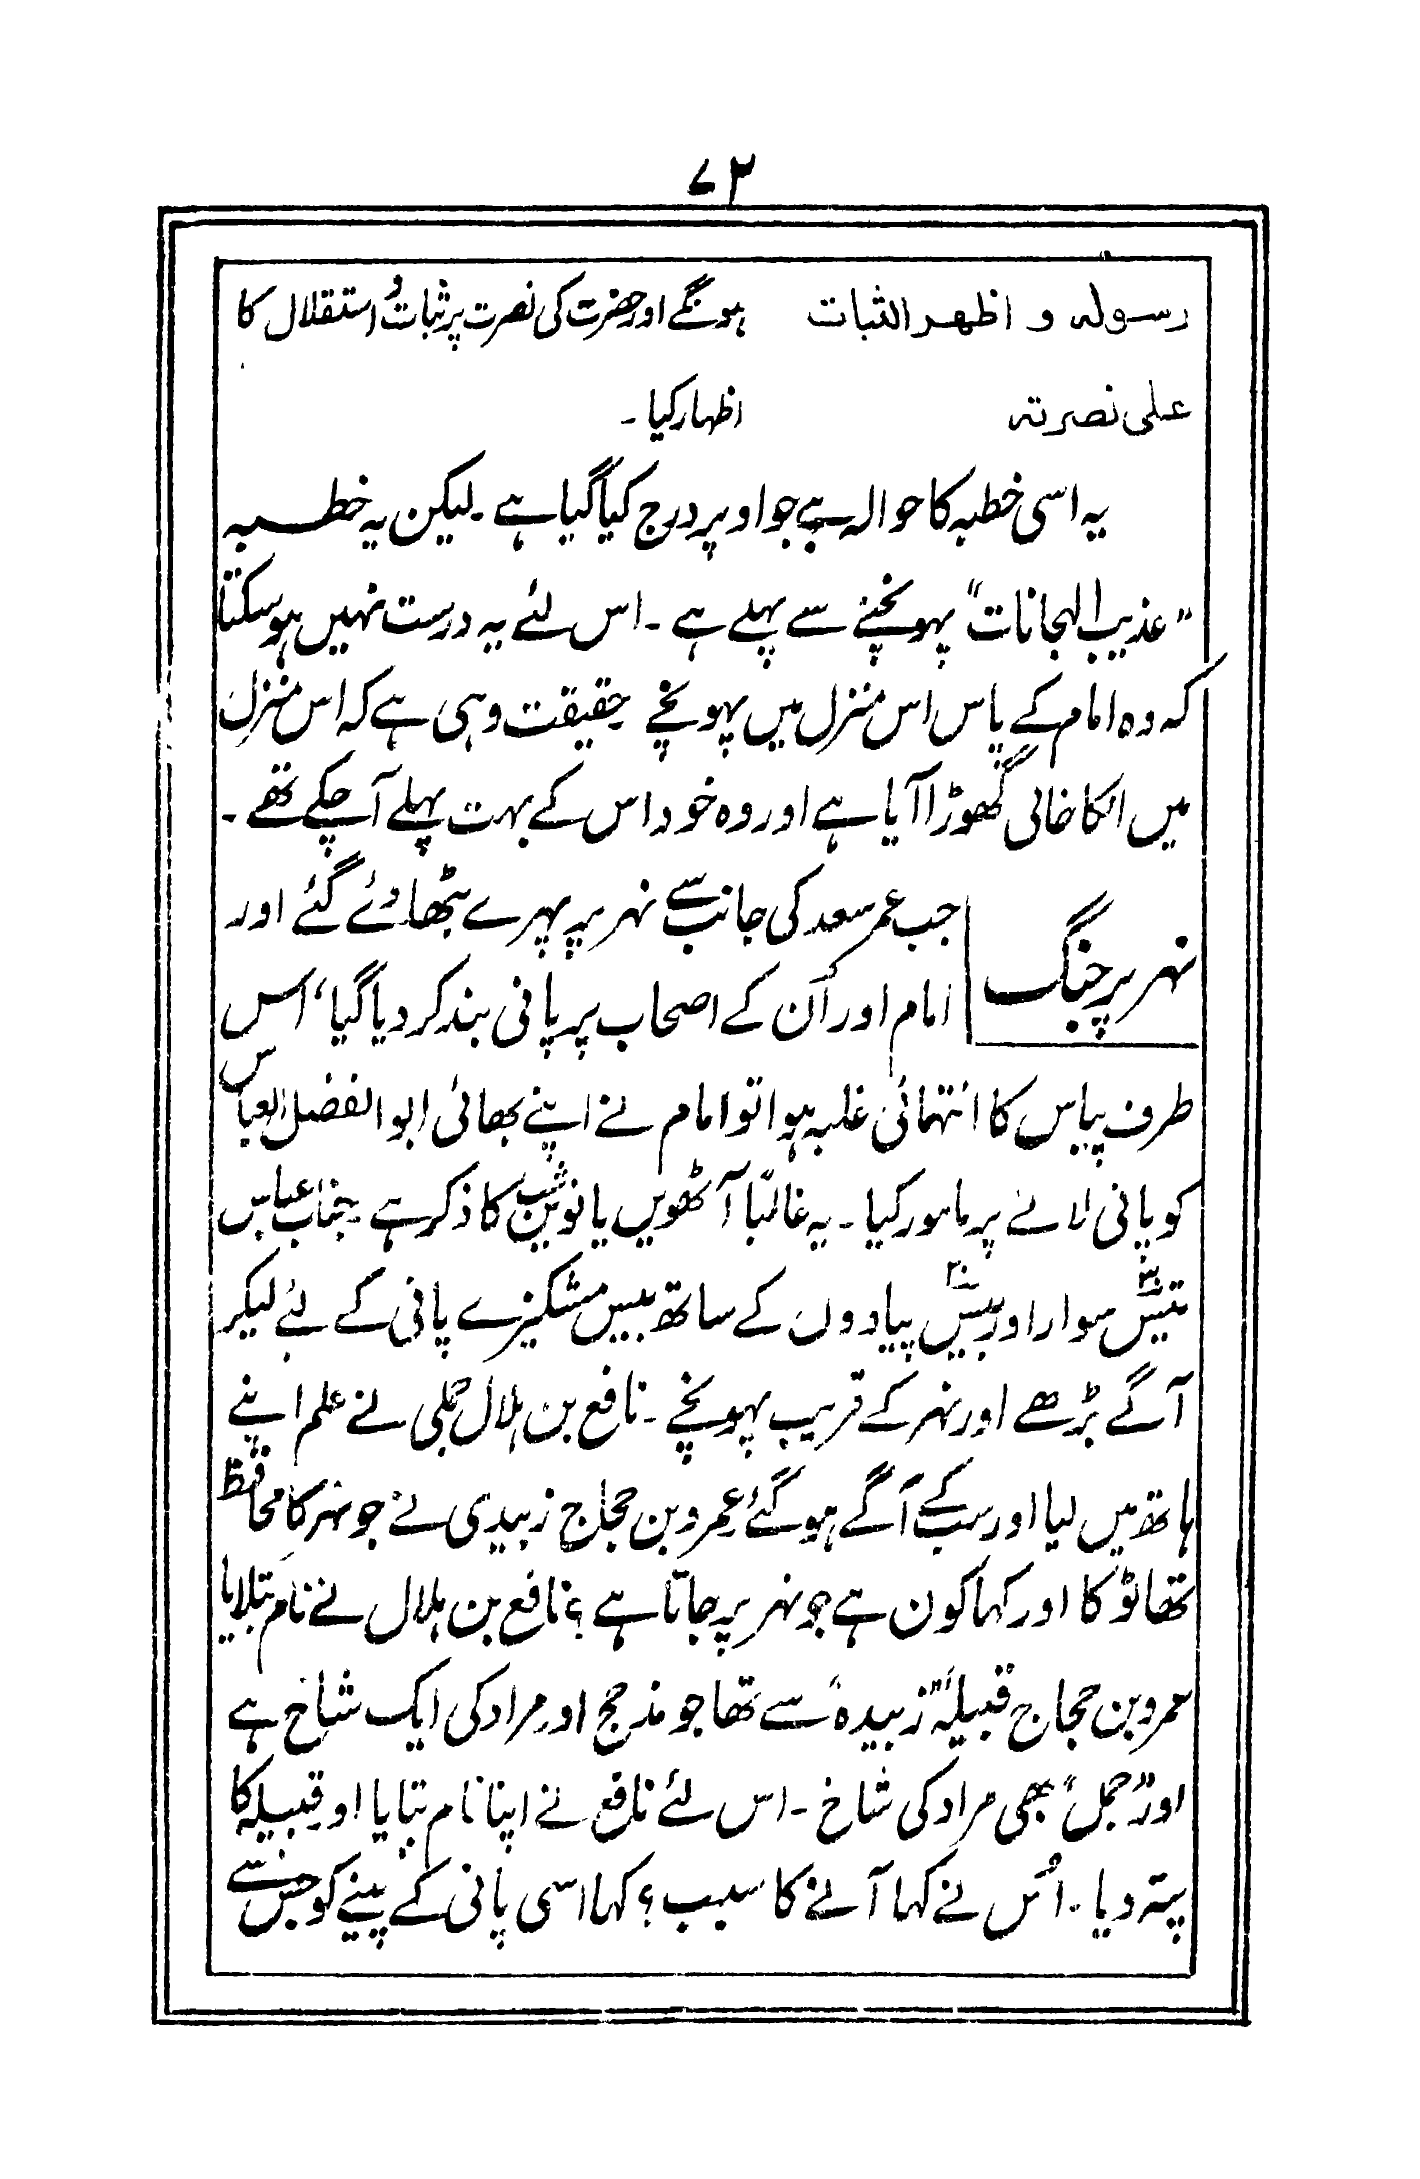 ۷۳
رسولہ و اظہر الثبات ہونگے اور حضرت کی نصرت پر ثبات و استقلال کا
علی نصرتہ اظہار کیا ۔
یہ اسی خطبہ کا حوالہ ہے جو اوپر درج کیا گیا ہے ۔ لیکن یہ خطبہ
”عذیب الہجانات“ پہونچنے سے پہلے ہے ۔ اس لئے یہ درست نہیں ہو سکتا
کہ وہ امام کے پاس اس منزل میں پہونچے حقیقت وہی ہے کہ اس منزل
میں انکا خالی گھوڑا آیا ہے اور وہ خود اس کے بہت پہلے آ چکے تھے ۔
نہر پر جنگ
جب عمر سعد کی جانب سے نہر پر پہرے بٹھا دئے گئے اور
امام اور اُن کے اصحاب پر پانی بند کر دیا گیا، اس
طرف پیاس کا انتہائی غلبہ ہوا تو امام نے اپنے بھائی ابو الفضل العباس
کو پانی لانے پر مامور کیا ۔ یہ غالبًا آٹھویں یا نویں شب کا ذکر ہے ۔ جناب عباس
تیس۳۰ سوار اور بیس۲۰ پیادوں کے ساتھ بیس مشکیزے پانی کے لئے لیکر
آگے بڑھے اور نہر کے قریب پہونچے ۔ نافع بن ہلال جملی نے علم اپنے
ہاتھ میں لیا اور سب کے آگے ہو گئے عمرو بن حجاج زبیدی نے جو نہر کا محافظ
تھا ٹوکا اور کہا کون ہے جو نہر پر جاتا ہے ؟ نافع بن ہلال نے نام بتلایا
عمرو بن حجاج قبیلہ ”زبیدہ“ سے تھا جو مذحج اور مراد کی ایک شاخ ہے
اور ”جمل“ بھی مراد کی شاخ ۔ اس لئے نافع نے اپنا نام بتایا اور قبیلہ کا
پتہ دیا ۔ اُس نے کہا آنے کا سبب ؟ کہا اسی پانی کے پینے کو جس سے